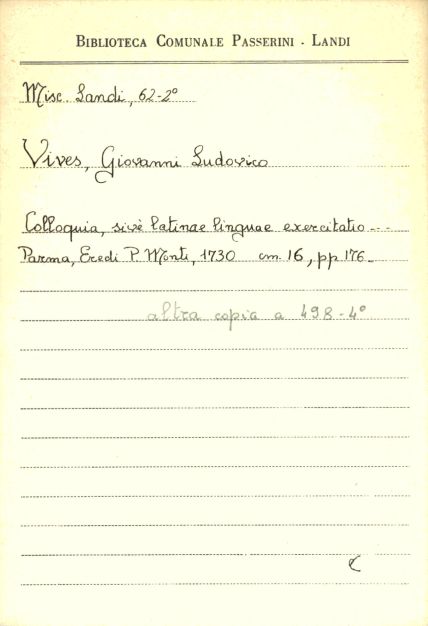 BIBLIOTECA COMUNALE PASSERINI - LANDI
Misc. Landi, 62-2°
Vives, Giovanni Ludovico
Colloquia, sivè latinae linguae exercitatio ...
Parma, Eredi P. Monti, 1730 cm. 16, pp. 176.
altra copia a 498-4°
C